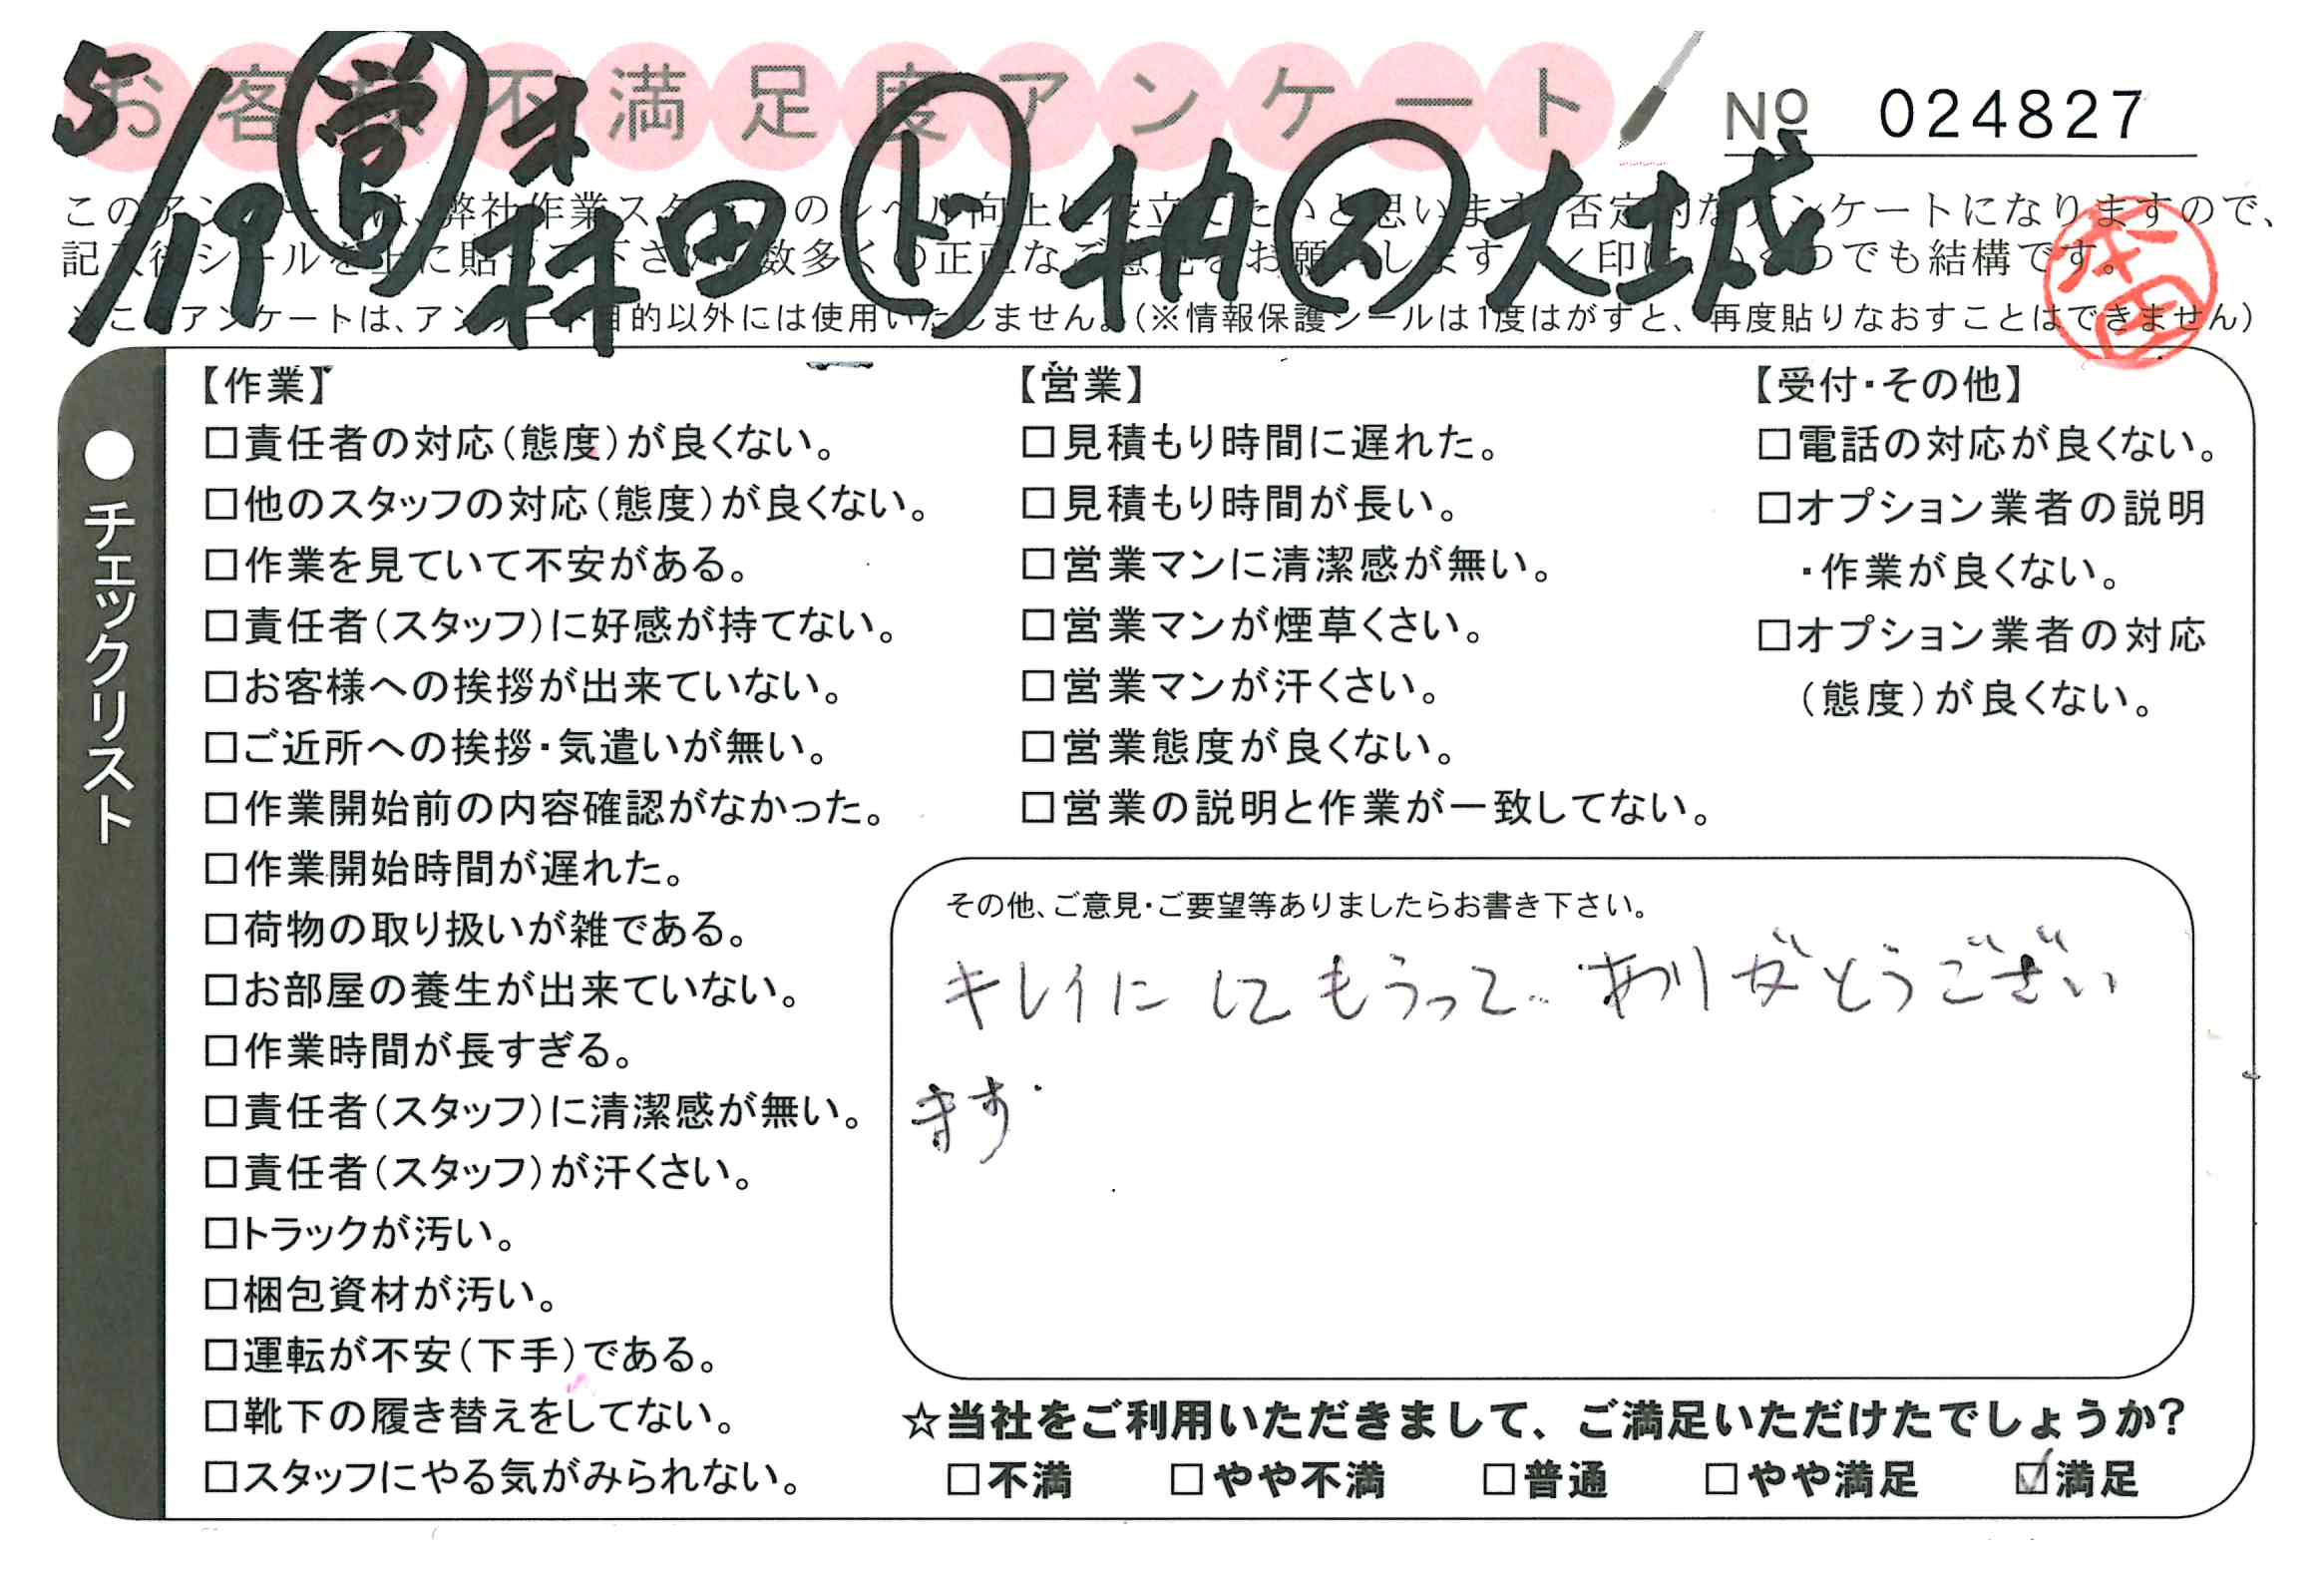 お客様不満足度アンケート
No 024827
5/19 営 森田 ト 柏 ス 大城
このアンケートは、弊社作業スタッフのレベル向上に役立てたいと思います。否定的なアンケートになりますので、
記入後シールを上に貼って下さい。数多くの正直なご意見をお願いします。✓印は、いくつでも結構です。
※このアンケートは、アンケート目的以外には使用いたしません。(※情報保護シールは1度はがすと、再度貼りなおすことはできません)
本田
●チェックリスト
【作業】
□責任者の対応(態度)が良くない。
□他のスタッフの対応(態度)が良くない。
□作業を見ていて不安がある。
□責任者(スタッフ)に好感が持てない。
□お客様への挨拶が出来ていない。
□ご近所への挨拶・気遣いが無い。
□作業開始前の内容確認がなかった。
□作業開始時間が遅れた。
□荷物の取り扱いが雑である。
□お部屋の養生が出来ていない。
□作業時間が長すぎる。
□責任者(スタッフ)に清潔感が無い。
□責任者(スタッフ)が汗くさい。
□トラックが汚い。
□梱包資材が汚い。
□運転が不安(下手)である。
□靴下の履き替えをしてない。
□スタッフにやる気がみられない。
【営業】
□見積もり時間に遅れた。
□見積もり時間が長い。
□営業マンに清潔感が無い。
□営業マンが煙草くさい。
□営業マンが汗くさい。
□営業態度が良くない。
□営業の説明と作業が一致してない。
【受付・その他】
□電話の対応が良くない。
□オプション業者の説明
・作業が良くない。
□オプション業者の対応
(態度)が良くない。
その他、ご意見・ご要望等ありましたらお書き下さい。
キレイにしてもらって ありがとうござい
ます
☆当社をご利用いただきまして、ご満足いただけたでしょうか?
□不満 □やや不満 □普通 □やや満足 ☑満足